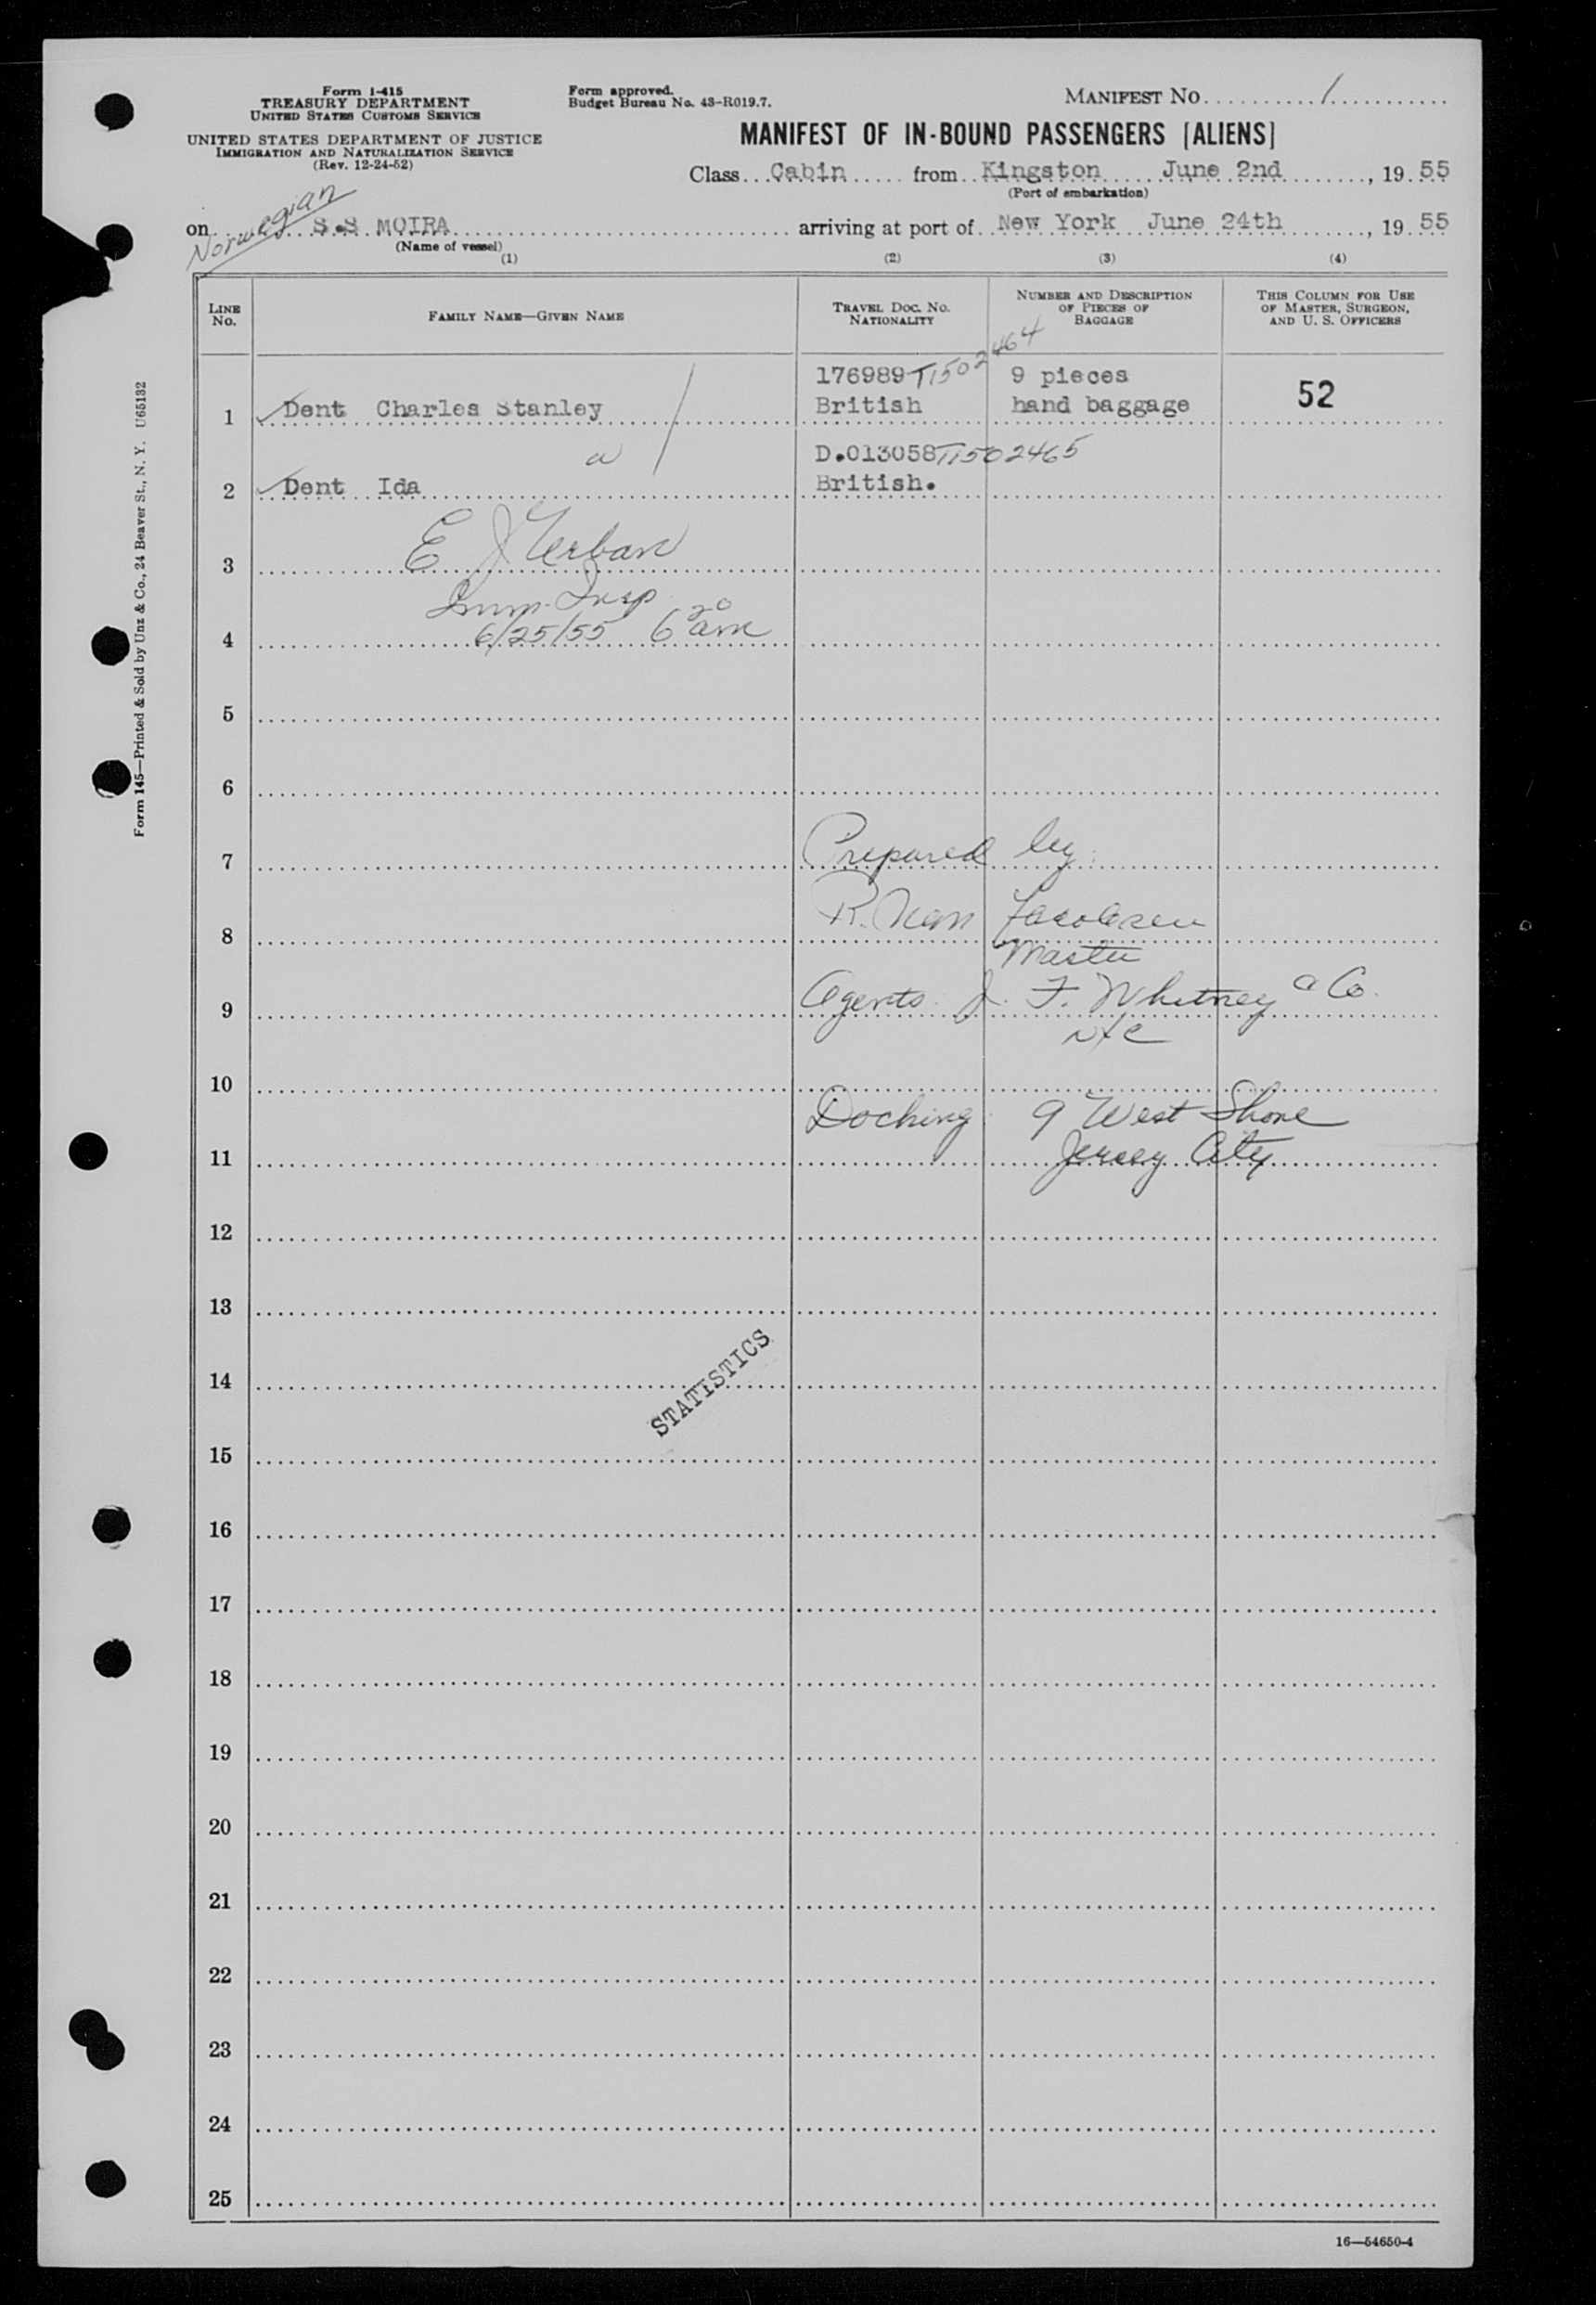 Form I-415
TREASURY DEPARTMENT
UNITED STATES CUSTOMS SERVICE
UNITED STATES DEPARTMENT OF JUSTICE
IMMIGRATION AND NATURALIZATION SERVICE
(Rev. 12-24-52)
Form approved.
Budget Bureau No. 43-R019.7.
MANIFEST NO. 1
MANIFEST OF IN-BOUND PASSENGERS [ALIENS]
Class Cabin from Kingston June 2nd, 19 55
(Port of embarkation)
Norwegian
on S.S MOIRA arriving at port of New York June 24th, 19 55
(Name of vessel)
(1) (2) (3) (4)
LINE No.
FAMILY NAME—GIVEN NAME
TRAVEL DOC. NO. NATIONALITY
NUMBER AND DESCRIPTION OF PIECES OF BAGGAGE
THIS COLUMN FOR USE OF MASTER, SURGEON, AND U. S. OFFICERS
176989 T1502464 9 pieces
1 Dent Charles Stanley British hand baggage 52
D.013058 T1502465
2 Dent Ida British.
3 E J
Imm. Insp
4 6/25/55 6 20 am
5
6
7 Prepared by
8 R. Jacobsen
Master
9 Agents J. F. Whitney & Co.
NYC
10
Docking 9 West Shore
11 Jersey City
12
13
STATISTICS
14
15
16
17
18
19
20
21
22
23
24
25
16—54650-4
Form 145—Printed & Sold by Unz & Co., 24 Beaver St., N. Y. U65132